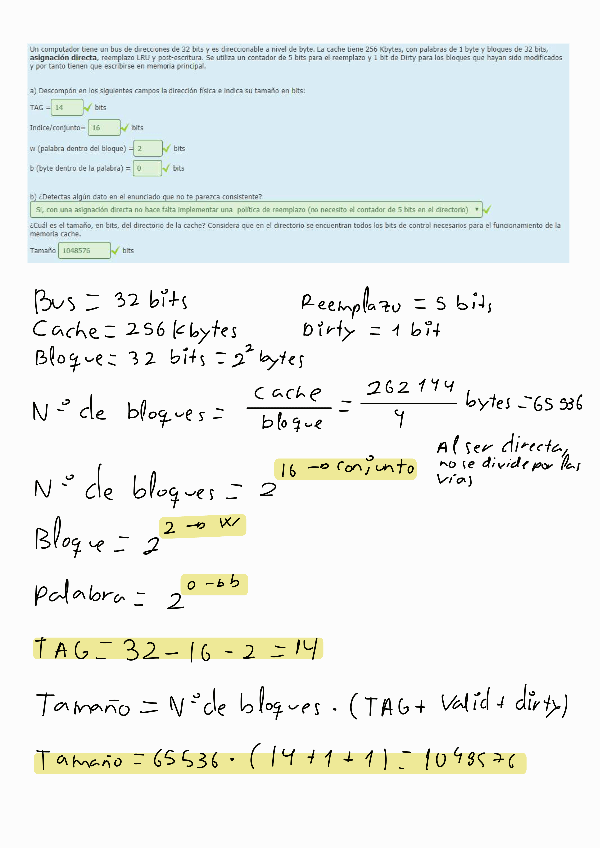 Un computador tiene un bus de direcciones de 32 bits y es direccionable a nivel de byte. La cache tiene 256 Kbytes, con palabras de 1 byte y bloques de 32 bits,
asignación directa, reemplazo LRU y post-escritura. Se utiliza un contador de 5 bits para el reemplazo y 1 bit de Dirty para los bloques que hayan sido modificados
y por tanto tienen que escribirse en memoria principal.
a) Descompón en los siguientes campos la dirección física e indica su tamaño en bits:
TAG = 14 bits
Indice/conjunto= 16 bits
w (palabra dentro del bloque) = 2 bits
b (byte dentro de la palabra) = 0 bits
b) ¿Detectas algún dato en el enunciado que no te parezca consistente?
Si, con una asignación directa no hace falta implementar una política de reemplazo (no necesito el contador de 5 bits en el directorio)
¿Cuál es el tamaño, en bits, del directorio de la cache? Considera que en el directorio se encuentran todos los bits de control necesarios para el funcionamiento de la
memoria cache.
Tamaño 1048576 bits
Bus = 32 bits Reemplazo = 5 bits
Cache = 256 Kbytes Dirty = 1 bit
Bloque = 32 bits = 2² bytes
Nº de bloques = cache / bloque = 262144 / 4 bytes = 65536
Al ser directa,
no se divide por las
vías
Nº de bloques = 2^16 → conjunto
Bloque = 2^2 → W
Palabra = 2^0 → b
TAG = 32 - 16 - 2 = 14
Tamaño = Nº de bloques · (TAG + Valid + dirty)
Tamaño = 65536 · (14 + 1 + 1) = 1048576